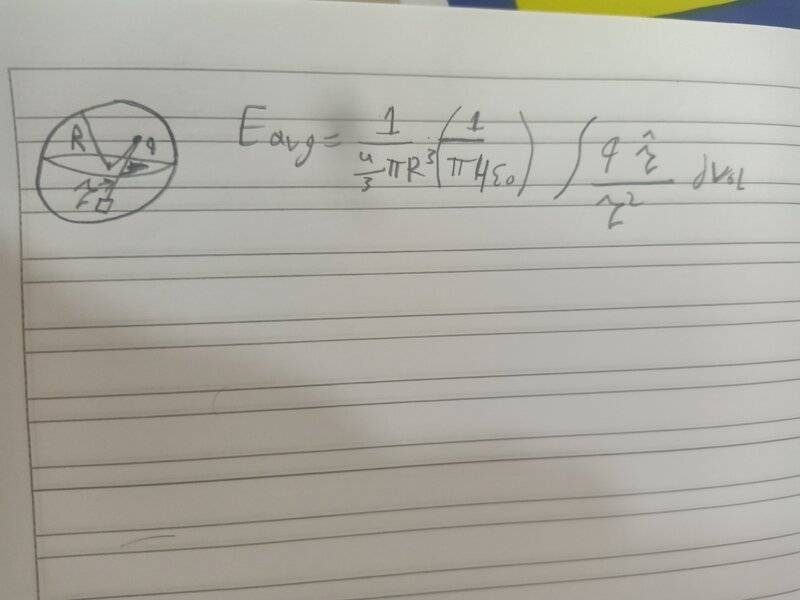 E avg = 1 / (4/3 πR³) (1 / π4ε₀) ∫ q r̂ / r² dvol
R
q
r